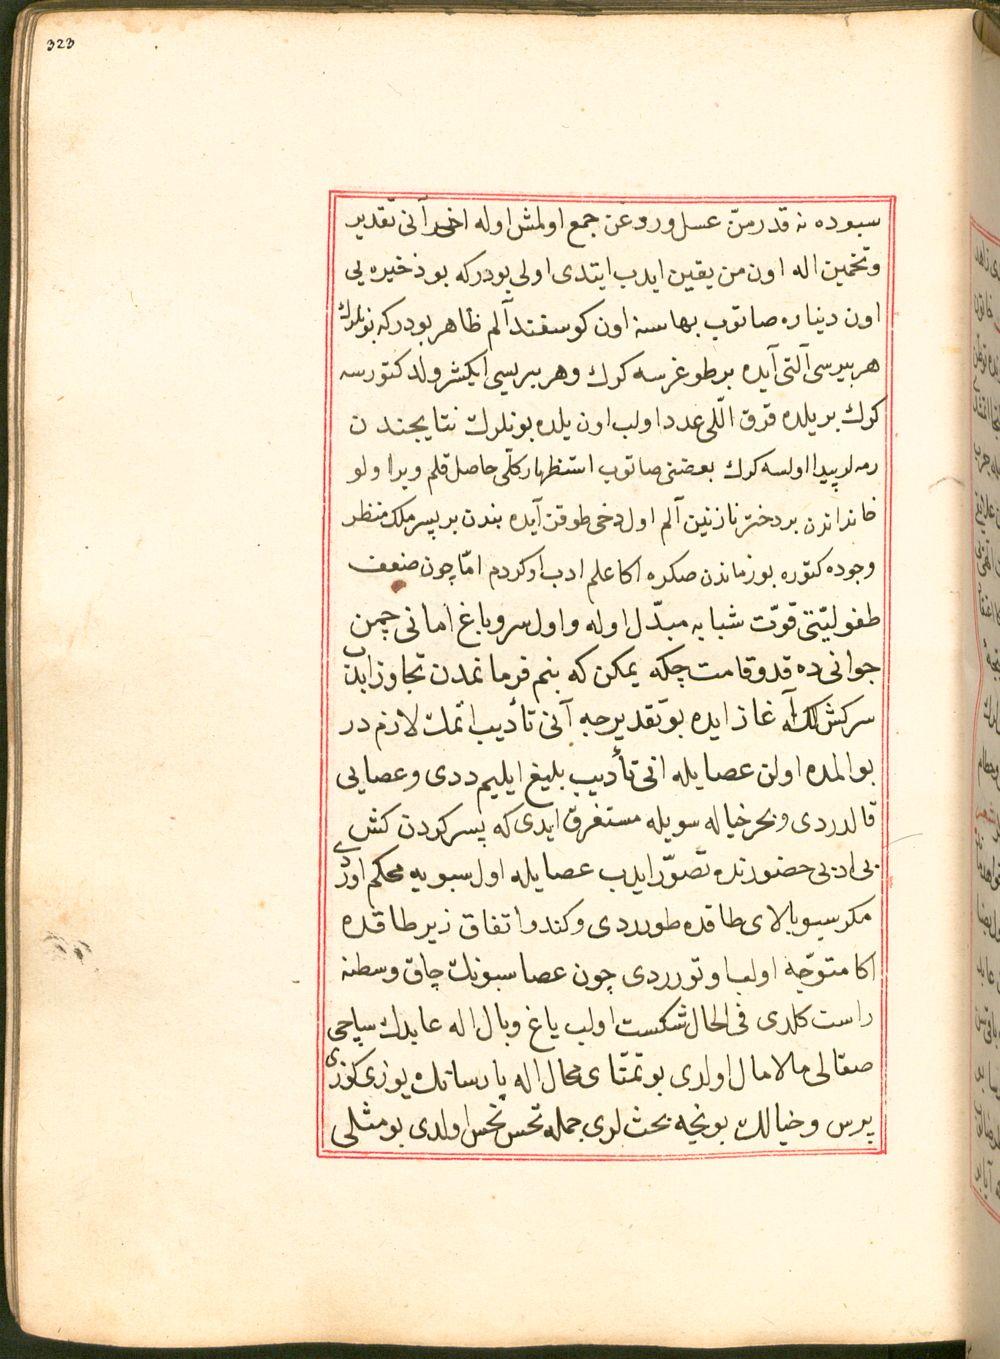 323
سبوده نه قدر من عسل و روغن جمع اولمش اوله اخر آنی تقدیر
و تخمین اله اون من یقین ایدب ایتدی اولی بودرکه بو ذخیره یی
اون دیناره صاتوب بهاسنه اون کوسفند آلم ظاهر بودرکه بونلرك
هر بیرسی آلتی آیده بر طوغرسه کرك و هر بریسی ایکشر ولد کتورسه
کرك بر یلده قرق اللی عدد اولب اون یلده بونلرك نتایجندن
رمه لر پیدا اولسه کرك بعضنی صاتوب استظهار کلّی حاصل قلم و بر اولو
خانداندن بر دختر نازنین آلم اول دخی طوقز آیده بندن بر پسر ملك منظر
وجوده کتوره بو زماندن صکره اکا علم ادب اوکردم امّا چون ضعف
طفولیّتی قوّت شبابه مبدّل اوله و اول سرو باغ امانی چمن
جوانی ده قد و قامت چکه یمکن که بنم فرمانمدن تجاوز ایدب
سرکش لك آغاز ایده بو تقدیرجه آنی تأدیب اتمك لازم در
بو المده اولن عصایله انی تأدیب بلیغ ایلیم ددی و عصایی
قالدردی و بحر خیاله سویله مستغرق ایدی که پسر کردن کش
بی ادبی حضورنده تصوّر ایدب عصایله اول سبویه محکم اوردی
مکر سبو بالای طاقده طوردی و کندو اتفاق زیر طاقده
اکا متوّجه اولب اوتوردی چون عصا سبونك چاق وسطنه
راست کلدی فی الحال شکست اولب یاغ و بال اله عابدك ساچی
صقالی مالامال اولدی بو تمنّای محال اله پارسانك یوزی کوزی
پرس و خیالك بونجه بحث لری جمله تحس نحس اولدی بو مثلی